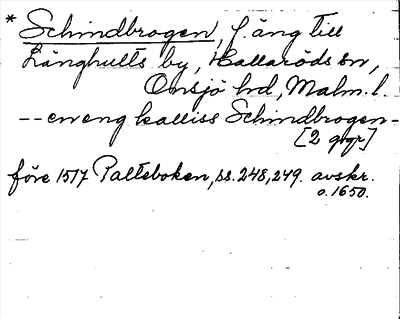 * Schindbrogen, f. äng till
Långhults by, Hallaröds sn,
Onsjö hd, Malm. l.
-- en eng kalliss Schindbrogen -
[2 ggr]
före 1517 Palteboken, ss. 248, 249. avskr.
o. 1650.